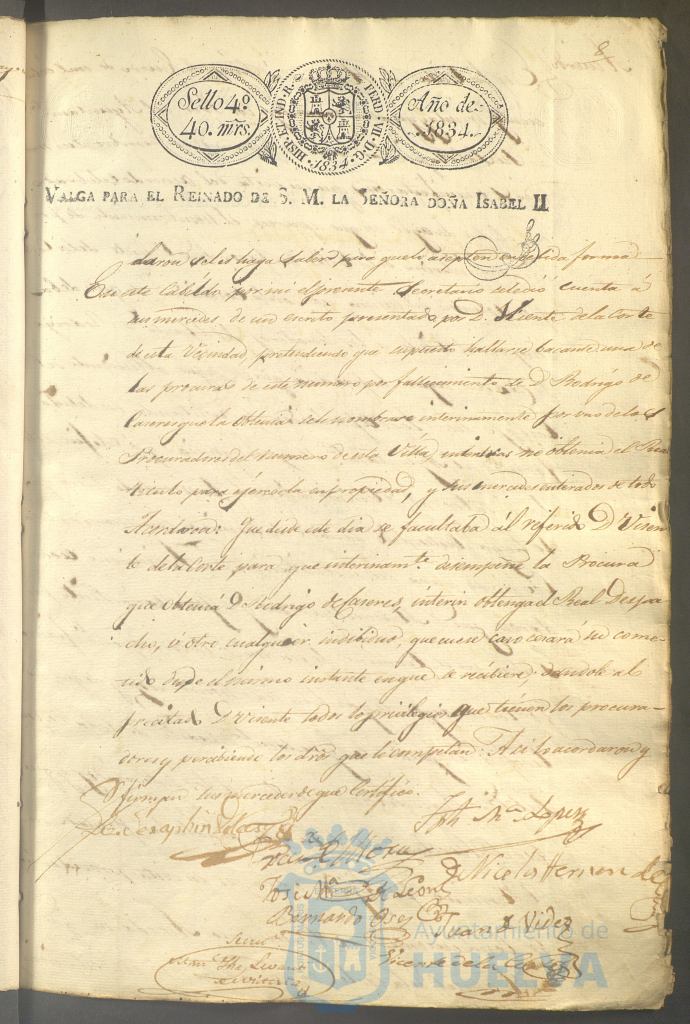 8
Sello 4º
40. mrs.
HISP. ET IND. R. FERD. VII. D. G.
1834
Año de
1834.
VALGA PARA EL REINADO DE S. M. LA SEÑORA DOÑA ISABEL II
daron se les haga saber para que lo acepten en devida forma
En este Cabildo por mi el presente Secretario se le dió cuenta á
sus mercedes de un escrito presentado por D. Vicente de la Corte
de esta Vecindad, pretendiendo que supuesto hallarse bacante una de
las procuras de este numero por fallecimiento de D Rodrigo de
Caseres que la obtenia se le nombrare interinamente por uno de los
Procuradores del numero de esta Villa, interin no obtenia el Real
titulo para ejercerla en propiedad, y sus mercedes enterados de todo
Acordaron: Que desde este dia se facultaba al referido D Vicen-
te de la Corte para que interinamte. desempeñe la Procura
que obtenia D Rodrigo de Caseres, interin obtenga el Real Despa-
cho, ú otro cualquier individuo, que en ese caso cesará su come-
tido desde el mismo instante en que se recibiere, dandole al
precitado D Vicente todos los privilegios que tienen los procura-
dores y percibiendo los dros que le competan: Asi lo acordaron y
firman sus mercedes de que Certifico.
Lopez
José Ma de Leon
D Nicolas Hernandez
Bernardo
Juan de Videz
Vicente de la Corte
Ayuntamiento de
HUELVA